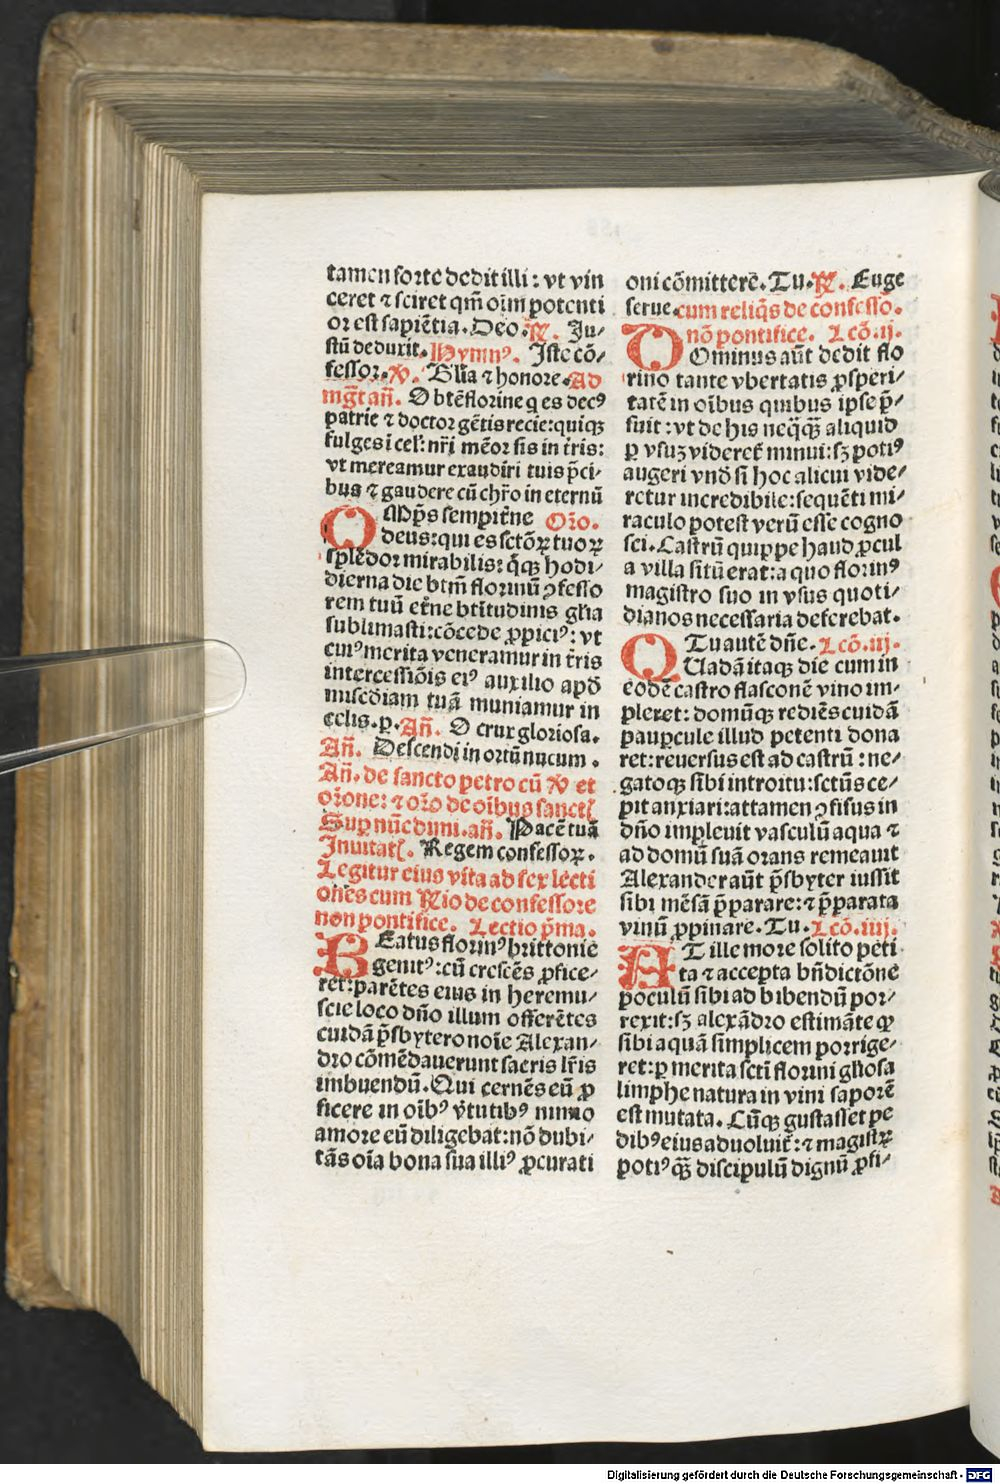 tamen forte dedit illi : vt vin
ceret ⁊ sciret qm̃ oim̃ potenti
or est sapiẽtia. Deo. ℟. Ju-
stũ deduxit. Hymn⁹. Iste cõ/
fessor. ℣. Glia ⁊ honore. Ad
mg̃t añ. O btẽ florine q es dec⁹
patrie ⁊ doctor gẽtis recie: quiqꝫ
fulges ĩ cel̃: nr̃i mẽor sis in tr̃is:
vt mereamur exaudiri tuis p̃ci-
bus ⁊ gaudere cũ chr̃o in eternũ
OMp̃s sempit̃ne Oro.
deus: qui es sctõꝝ tuoꝝ
splẽdor mirabilis: q̃qꝫ hodi-
dierna die btm̃ florinũ ꝯfesso
rem tuũ et̃ne btitudinis glia
sublimasti: cõcede ꝓpici⁹: vt
cui⁹ merita veneramur in tr̃is
intercessiõis ei⁹ auxilio apd̃
miscd̃iam tuã muniamur in
celis. p. Añ. O crux gloriosa.
Añ. Descendi in ortũ nucum.
Añ. de sancto petro cũ ℣ et
orõne: ⁊ orõ de oĩbus sanctꝭ
Suꝑ nũc dimi. añ. Pacẽ tuã
Inuitatꝭ. Regem confessoꝝ.
Legitur eius vita ad sex lecti
ones cum ℟io de confessore
non pontifice. Lectio p̃ma.
BEatus florin⁹ brittonie
genit⁹: cũ crescẽs ꝓfice/
ret: parẽtes eius in heremu/
scie loco dño illum offerẽtes
cuidã p̃sbytero noĩe Alexan/
dro cõmẽdauerunt sacris lr̃is
imbuendũ. Qui cernẽs eũ ꝓ
ficere in oĩb⁹ v̓tutib⁹ nimio
amore eũ diligebat: nõ dubi/
tãs oĩa bona sua illi⁹ ꝓcurati
oni cõmittere. Tu. ℟. Euge
serue. cum reliq̃s de confesso.
nõ pontifice. Lcõ. ij.
DOminus aũt dedit flo
rino tante vbertatis ꝓsperi/
tatẽ in oĩbus quibus ipse p̃/
fuit : vt de his neq̃q̃ꝫ aliquid
ꝑ vsuꝫ videret̃ minui: sꝫ poti⁹
augeri vnd̃ si hoc alicui vide/
retur incredibile: sequẽti mi/
raculo potest verũ esse cogno
sci. Castrũ quippe haud ꝓcul
a villa sitũ erat: a quo florin⁹
magistro suo in vsus quoti/
dianos necessaria deferebat.
Tu autẽ dñe. Lcõ. iij.
QUadã itaqꝫ die cum in
eodẽ castro flasconẽ vino im-
pleret: domũqꝫ rediẽs cuidã
pauꝑcule illud petenti dona
ret: reuersus est ad castrũ : ne/
gatoqꝫ sibi introitu: sctũs ce/
pit anxiari: attamen ꝯfisus in
dño impleuit vasculũ aqua ⁊
ad domũ suã orans remeauit
Alexander aũt p̃sbyter iussit
sibi mẽsã p̃parare: ⁊ p̃parata
vinũ ꝓpinare. Tu. Lcõ. iiij.
AT ille more solito peti
ta ⁊ accepta bñdictõne
poculũ sibi ad bibendũ por/
rexit: sꝫ alexãdro estimãte ꝙ
sibi aquã simplicem porrige/
ret: ꝑ merita scti florini gliosa
limphe natura in vini saporẽ
est mutata. Cũqꝫ gustasset pe
dib⁹ eius aduoluit̃: ⁊ magistꝝ
poti⁹ q̃ꝫ discipulũ dignũ ꝓfi/
Digitalisierung gefördert durch die Deutsche Forschungsgemeinschaft - DFG